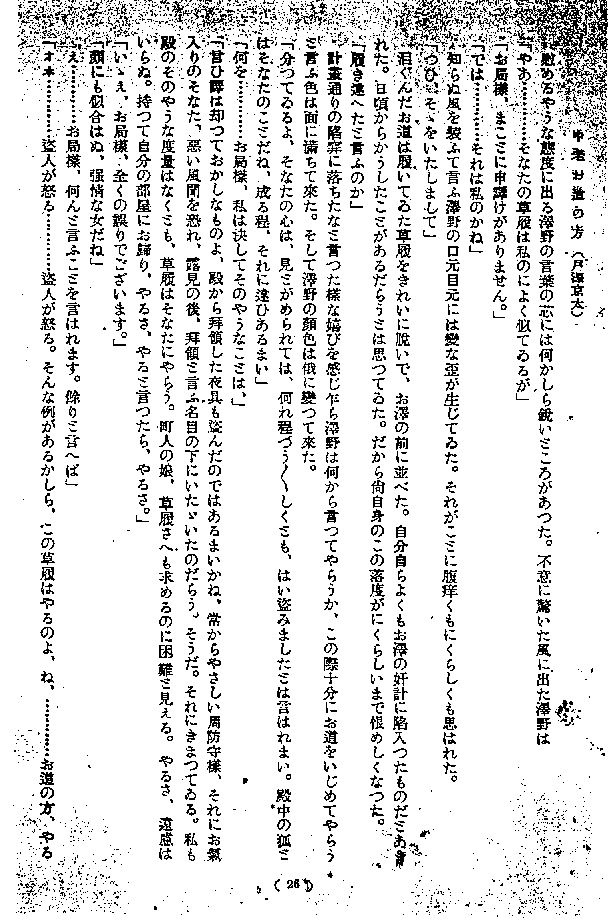 中老お道の方 (戸澤京太)
慰めるやうな態度に出る澤野の言葉の芯には何かしら鋭いところがあつた。不意に驚いた風に出た澤野は
「やあ…………そなたの草履は私のによく似てゐるが」
「お局様、まことに申譯けがありません。」
「では…………それは私のかね」
知らぬ風を裝ふて言ふ澤野の口元目元には變な歪が生じてゐた。それがことに腹痒くもにくらしくも思はれた。
「つひ、そゝをいたしまして」
泪ぐんだお道は履いてゐた草履をきれいに脱いで、お澤の前に並べた。自分自らよくもお澤の奸計に陷入つたものだとあき
れた。日頃からかうしたことがあるだらうとは思つてゐた。だから尚自身のこの落度がにくらしいまで恨めしくなつた。
「履き違へたと言ふのか」
計畫通りの陷穽に落ちたなと言つた樣な嬉びを感じ乍ら澤野は何から言つてやらうか、この際十分にお道をいじめてやらう
と言ふ色は面に滿ちて來た。そして澤野の顔色は俄に變つて來た。
「分つてゐるよ、そなたの心は、見とがめられては、何れ程づう〳〵しくとも、はい盗みましたとは言はれまい。殿中の狐と
はそなたのことだね、成る程、それに違ひあるまい」
「何を…………お局様、私は決してそのやうなことは、」
「言ひ譯は却つておかしなものよ、殿から拜領した夜具も盗んだのではあるまいかね、常からやさしい周防守様、それにお氣
入りのそなた、惡い風聞を恐れ、露見の後、拜領と言ふ名目の下にいたゞいたのだらう。そうだ。それにきまつてゐる。私も
殿のそのやうな度量はなくとも、草履はそなたにやらう。町人の娘、草履さへも求めるのに困難と見える。やるさ、遠慮は
いらぬ。持つて自分の部屋にお歸り、やるさ、やると言つたら、やるさ。」
「いゝえ、お局様、全くの誤りでございます。」
「顔にも似合はぬ、强情な女だね」
「え…………お局様、何んと言ふことを言はれます。餘りと言へば」
「オホ…………盗人が怒る…………盗人が怒る。そんな例があるかしら、この草履はやるのよ、ね、…………お道の方、やる
( 26 )